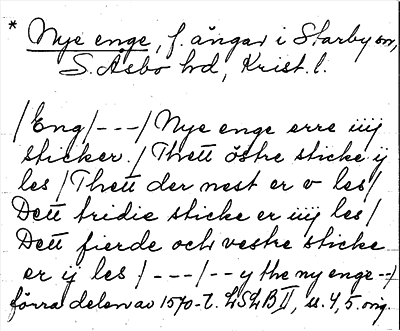 * Nye enge, f. ängar i Starby sn,
S. Åsbo hd, Krist. l.
/Eng/---/ Nye enge erre iiij
sticker. / Thett östre sticke ij
les / Thett der nest er v les /
Dett tridie sticke er iiij les /
Dett fierde och vestre sticke
er ij les / --- / -- y the ny enge --/
förra delen av 1570-t. LSLB II, s. 4, 5. orig.